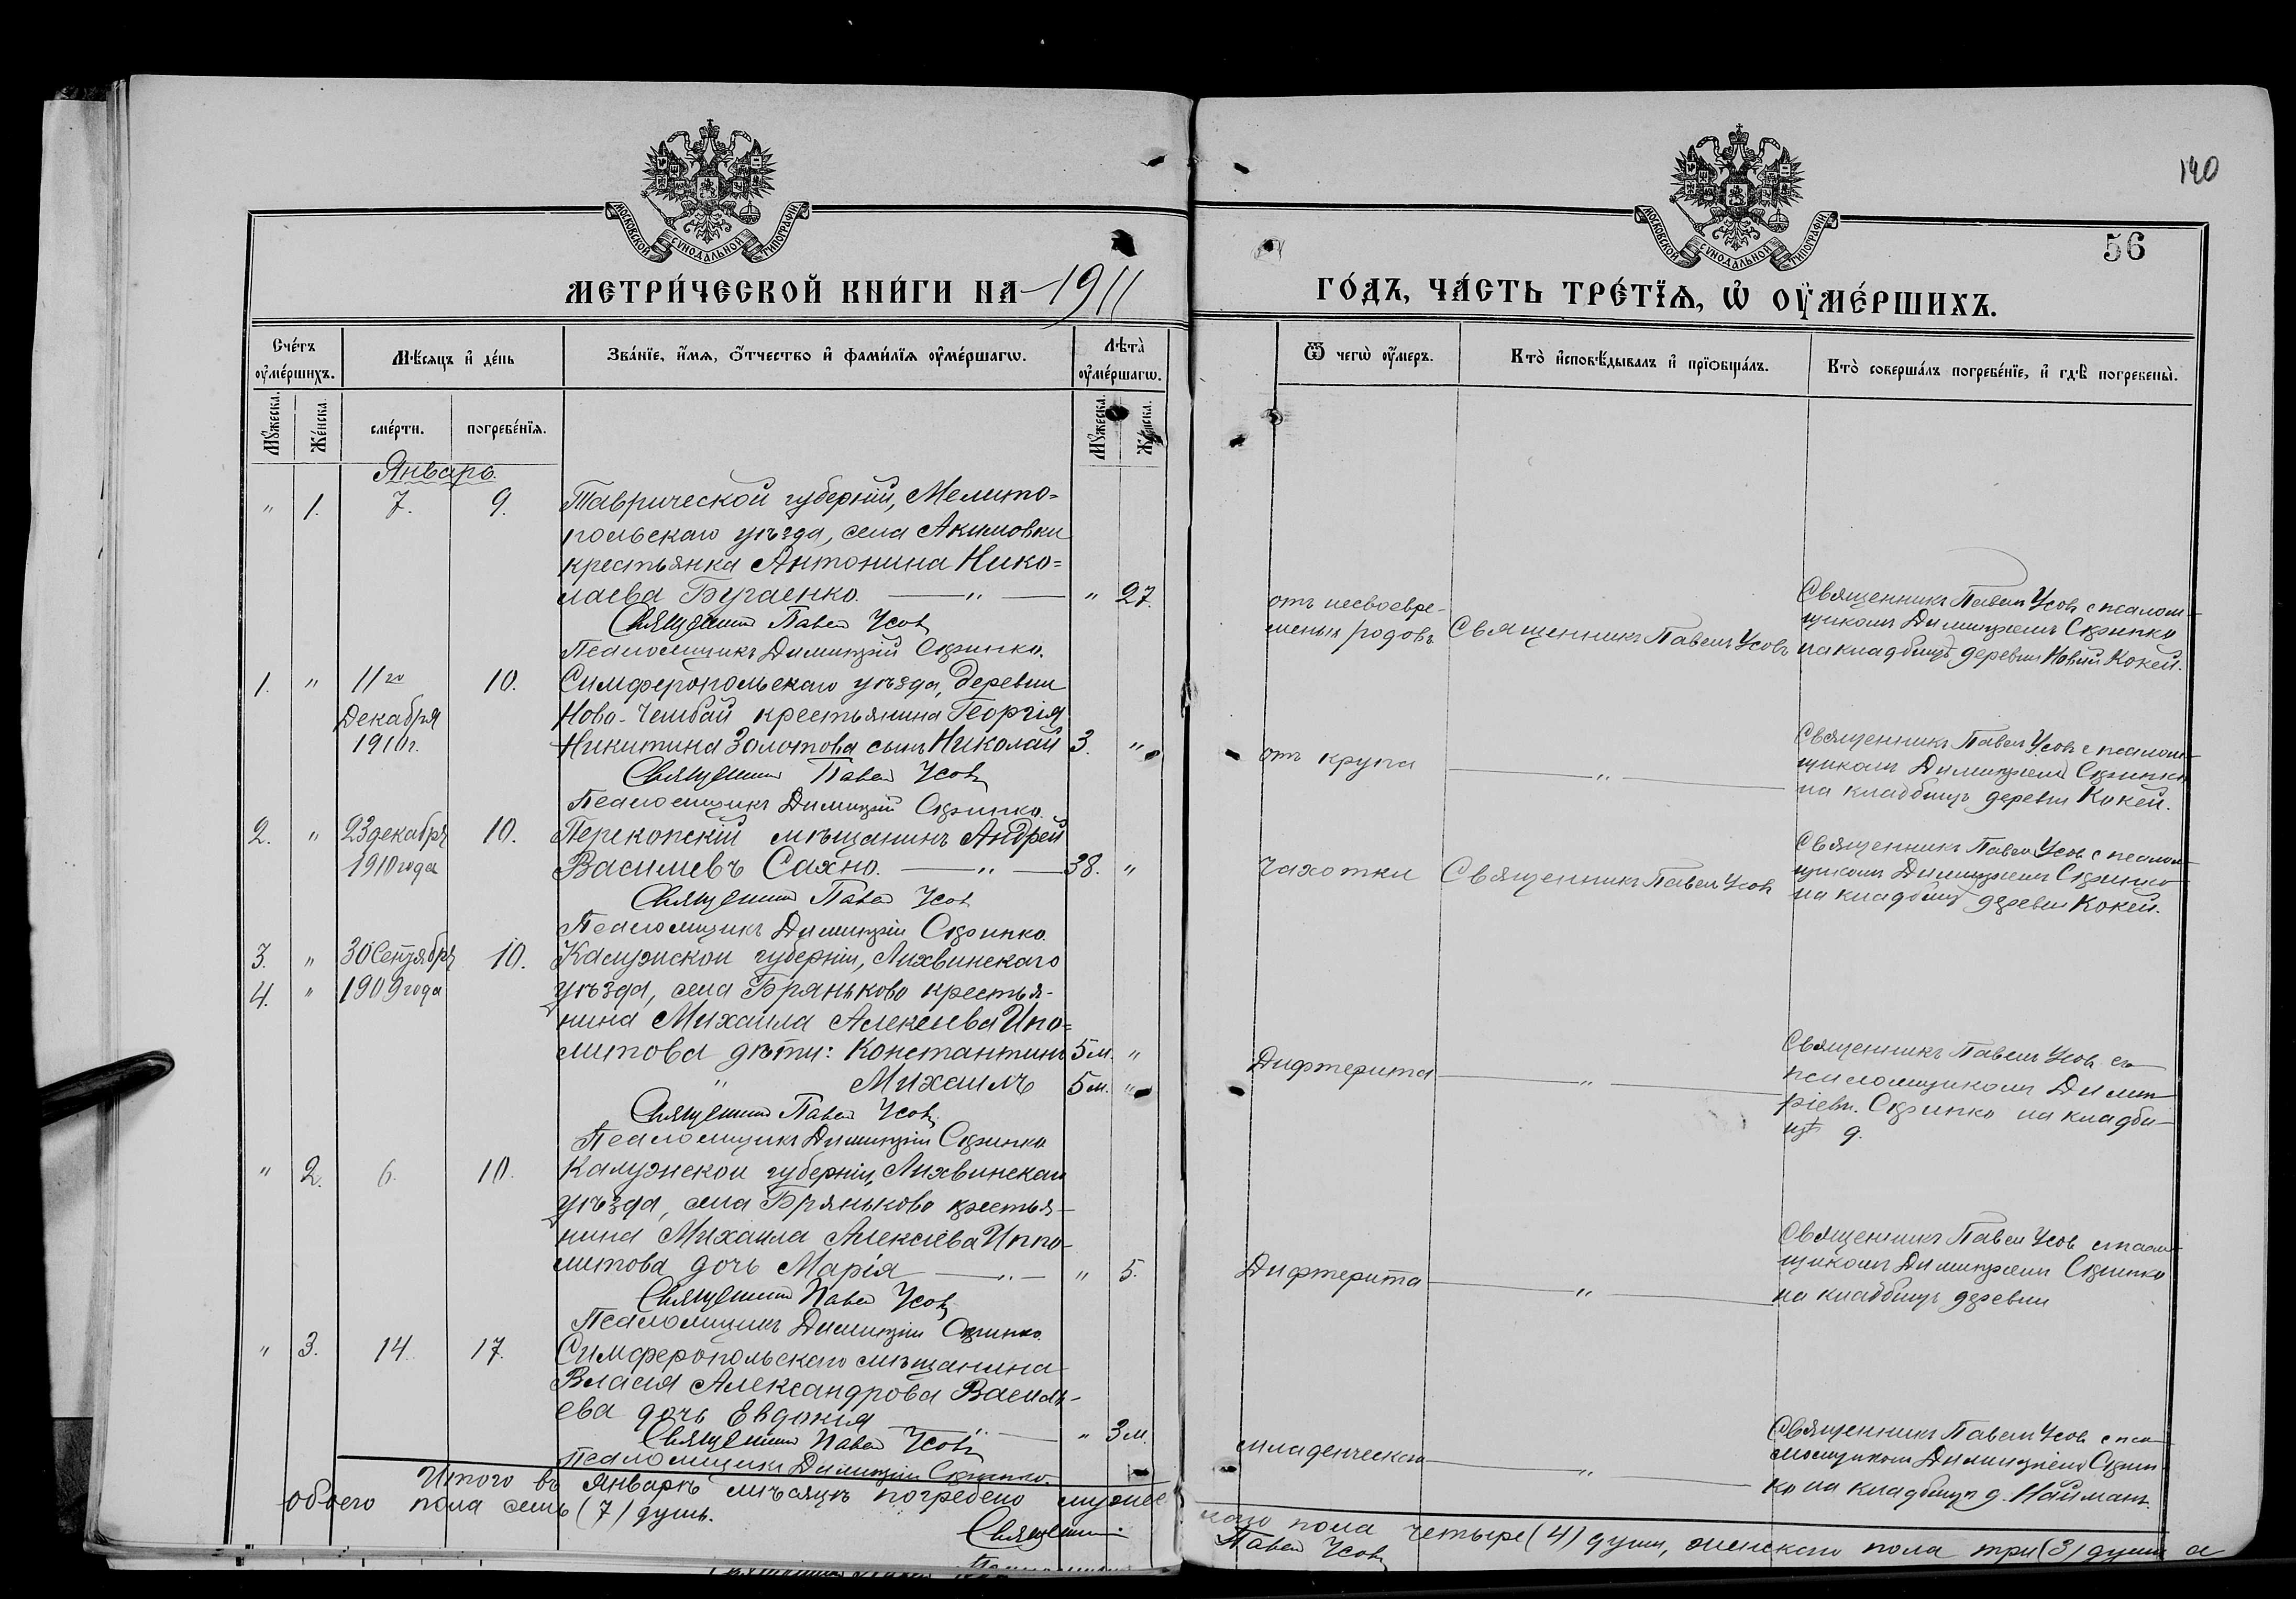 140
56
МОСКОВСКОЙ СѴНОДАЛЬНОЙ ТИПОГРАФІИ
МОСКОВСКОЙ СѴНОДАЛЬНОЙ ТИПОГРАФІИ
МЕТРИ́ЧЕСКОЙ КНИ́ГИ НА 1911
ГО́ДЪ, ЧА́СТЬ ТРЕ́ТЇѦ, Ѡ҆ ОУ҆МЕ́РШИХЪ.
Сче́тъ оу҆ме́ршихъ.
Мѣ́сяцъ и҆ де́нь
Зва́нїе, и҆́мѧ, ѻ҆́тчество и҆ фами́лїѧ оу҆ме́ршагѡ.
Лѣ́та̀ оу҆ме́ршагѡ.
Ѿ чегѡ̀ оу҆́меръ.
Кто̀ и҆сповѣ́дывалъ и҆ прїѡбща́лъ.
Кто̀ соверша́лъ погребе́нїе, и҆ гдѣ̀ погребены̀.
Мꙋ́жеска.
Же́нска.
сме́рти.
погребе́нїѧ.
Мꙋ́жеска.
Же́нска.
Январь.
" 1. 7. 9. Таврической губерніи, Мелито=
польскаго уѣзда, села Акимовки
крестьянка Антонина Нико=
лаева Бугаенко. " " 27.
Священникъ Павел Усовъ
Псаломщикъ Димитрій Скрипко.
отъ несвоевре-
менныя родовъ
Священникъ Павелъ Усовъ
Священникъ Павелъ Усовъ с псалом-
щикомъ Димитріемъ Скрипко
на кладбищѣ деревни Новый Кокей.
1. " 11го 10. Симферопольскаго уѣзда, деревни
Декабря Ново-Чембай крестьянина Георгія
1910г. Никитина Золотова сынъ Николай 3. "
Священникъ Павел Усовъ
Псаломщикъ Димитрій Скрипко.
отъ крупа "
Священникъ Павелъ Усовъ с псалом-
щикомъ Димитріемъ Скрипко
на кладбищѣ деревни Кокей.
2. " 23 декабря 10. Перекопскій мѣщанинъ Андрей
1910 года Василиевъ Сахно. " 38. "
Священникъ Павел Усовъ
Псаломщикъ Димитрій Скрипко.
Чахотки Священникъ Павелъ Усовъ
Священникъ Павелъ Усовъ с псалом-
щикомъ Димитріемъ Скрипко
на кладбищѣ деревни Кокей.
3. " 30 Сентября 10. Калужской губерніи, Лихвинскаго
4. " 1909 года уѣзда, села Бряньково крестья-
нина Михаила Алексіева Ипо=
литова дѣти: Константинъ 5 м. "
" Михаилъ 5 м. "
Священникъ Павел Усовъ
Псаломщикъ Димитрій Скрипко
Дифтерита "
Священникъ Павелъ Усовъ съ
псаломщикомъ Димит-
ріевм. Скрипко на кладби-
щѣ д.
" 2. 6. 10. Калужской губерніи, Лихвинскаго
уѣзда, села Бряньково крестья-
нина Михаила Алексіева Иппо-
литова дочь Марія " " 5.
Священникъ Павел Усовъ
Псаломщикъ Димитрій Скрипко.
Дифтерита "
Священникъ Павелъ Усовъ с псалом-
щикомъ Димитріемъ Скрипко
на кладбищѣ деревни
" 3. 14. 17. Симферопольскаго мѣщанина
Власія Александрова Василь-
ева дочь Евдокія " " 3 м.
Священникъ Павел Усовъ
Псаломщикъ Димитрій Скрипко.
младенческой "
Священникъ Павелъ Усовъ с пса-
ломщикомъ Димитріемъ Скрип-
ко на кладбищѣ д. Найманъ.
Итого въ январѣ мѣсяцѣ погребено мужес
каго пола четыре (4) души, женскаго пола три (3) души а
обоего пола семь (7) душъ.
Священникъ Павел Усовъ